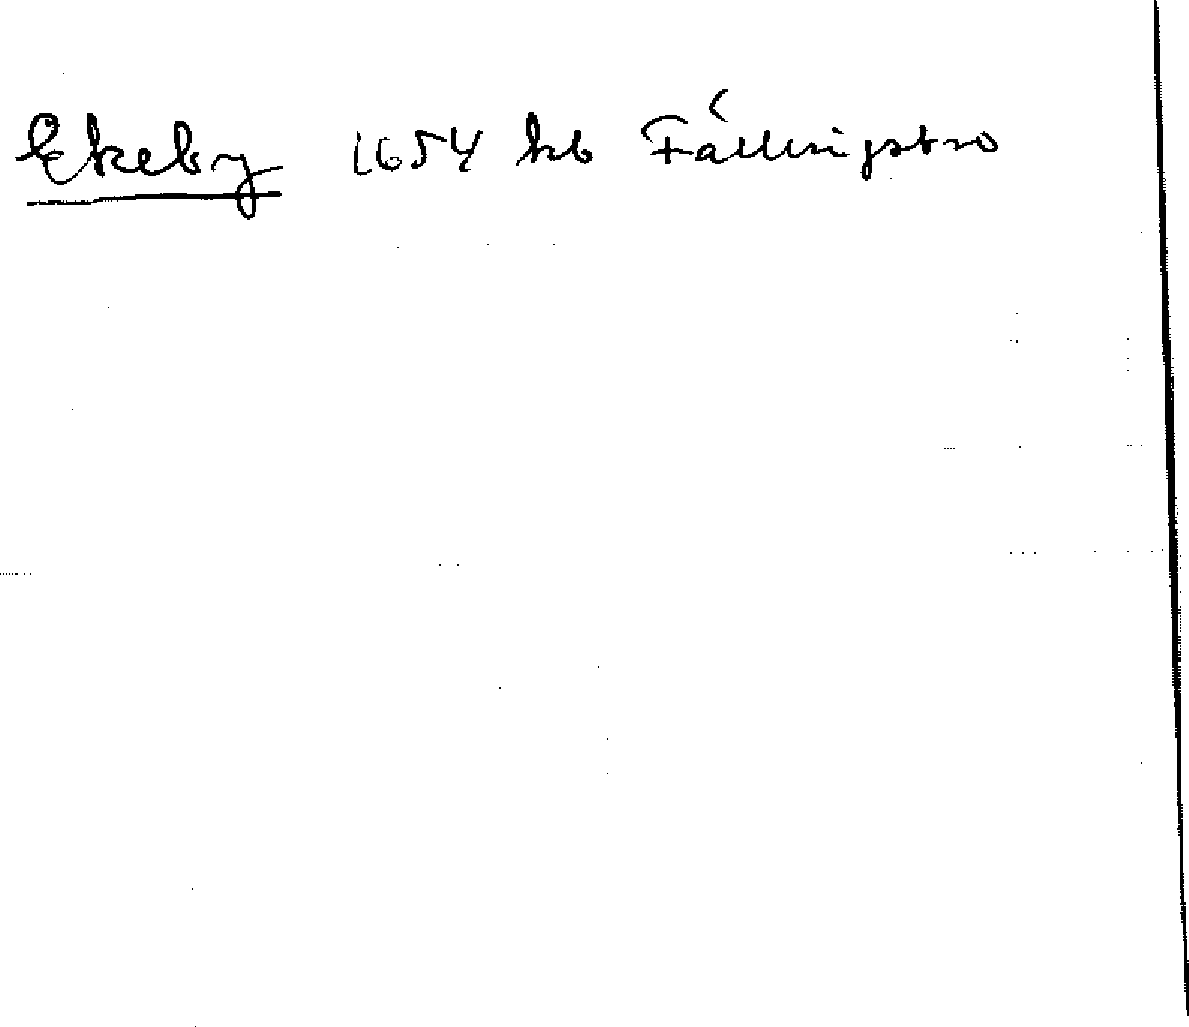 Ekeby 1654 kb Fällingsbro